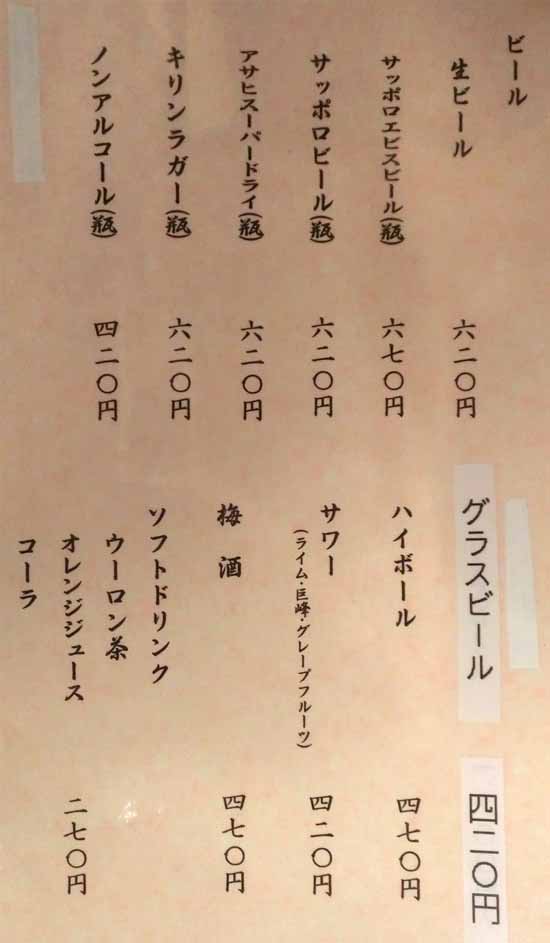 ビール
生ビール 六二〇円
サッポロエビスビール(瓶) 六七〇円
サッポロビール(瓶) 六二〇円
アサヒスーパードライ(瓶) 六二〇円
キリンラガー(瓶) 六二〇円
ノンアルコール(瓶) 四二〇円
グラスビール 四二〇円
ハイボール 四七〇円
サワー 四二〇円
(ライム・巨峰・グレープフルーツ)
梅酒 四七〇円
ソフトドリンク
ウーロン茶
オレンジジュース 二七〇円
コーラ